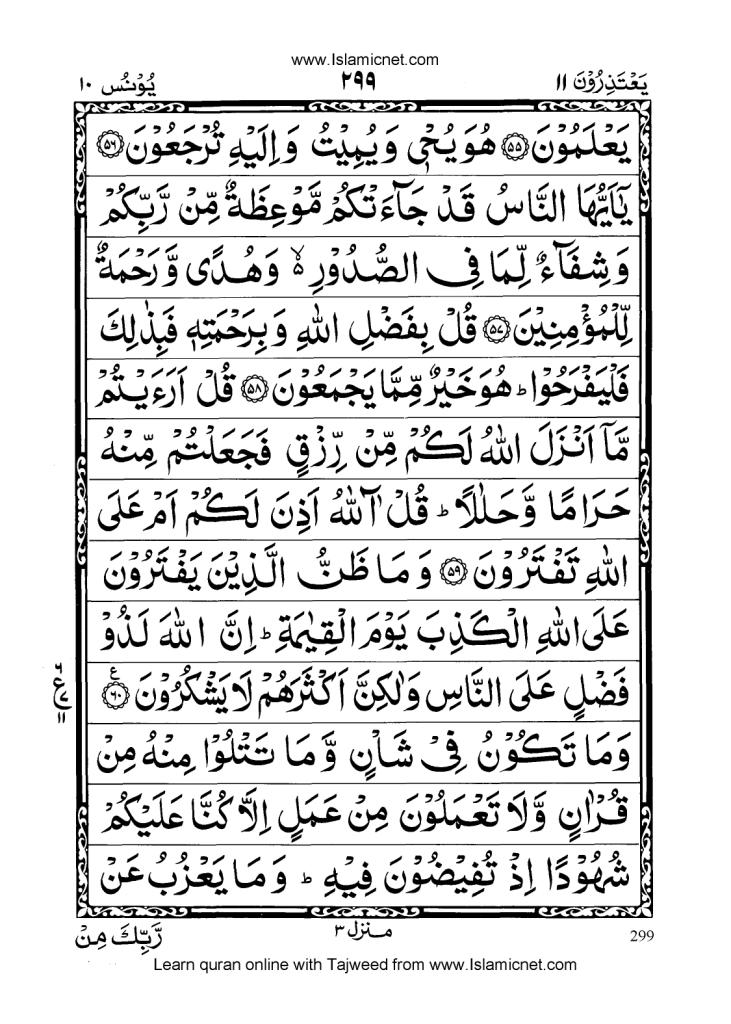 www.Islamicnet.com
يَعْتَذِرُوْنَ ١١ ٢٩٩ يُوْنُس ١٠
يَعْلَمُوْنَ ۝٥٥ هُوَ يُحْيٖ وَ يُمِيْتُ وَ اِلَيْهِ تُرْجَعُوْنَ ۝٥٦
يٰۤاَيُّهَا النَّاسُ قَدْ جَآءَتْكُمْ مَّوْعِظَةٌ مِّنْ رَّبِّكُمْ
وَ شِفَآءٌ لِّمَا فِى الصُّدُوْرِ ۙ وَ هُدًى وَّ رَحْمَةٌ
لِّلْمُؤْمِنِيْنَ ۝٥٧ قُلْ بِفَضْلِ اللّٰهِ وَ بِرَحْمَتِهٖ فَبِذٰلِكَ
فَلْيَفْرَحُوْا ؕ هُوَ خَيْرٌ مِّمَّا يَجْمَعُوْنَ ۝٥٨ قُلْ اَرَءَيْتُمْ
مَّاۤ اَنْزَلَ اللّٰهُ لَكُمْ مِّنْ رِّزْقٍ فَجَعَلْتُمْ مِّنْهُ
حَرَامًا وَّ حَلٰلًا ؕ قُلْ آٰللّٰهُ اَذِنَ لَكُمْ اَمْ عَلَى
اللّٰهِ تَفْتَرُوْنَ ۝٥٩ وَ مَا ظَنُّ الَّذِيْنَ يَفْتَرُوْنَ
عَلَى اللّٰهِ الْكَذِبَ يَوْمَ الْقِيٰمَةِ ؕ اِنَّ اللّٰهَ لَذُوْ
فَضْلٍ عَلَى النَّاسِ وَلٰكِنَّ اَكْثَرَهُمْ لَا يَشْكُرُوْنَ ۝٦٠ ع
٦ ع ٧ ١١
وَ مَا تَكُوْنُ فِىْ شَاْنٍ وَّ مَا تَتْلُوْا مِنْهُ مِنْ
قُرْاٰنٍ وَّ لَا تَعْمَلُوْنَ مِنْ عَمَلٍ اِلَّا كُنَّا عَلَيْكُمْ
شُهُوْدًا اِذْ تُفِيْضُوْنَ فِيْهِ ؕ وَ مَا يَعْزُبُ عَنْ
299 مـنزل ٣ رَّبِّكَ مِنْ
Learn quran online with Tajweed from www.Islamicnet.com